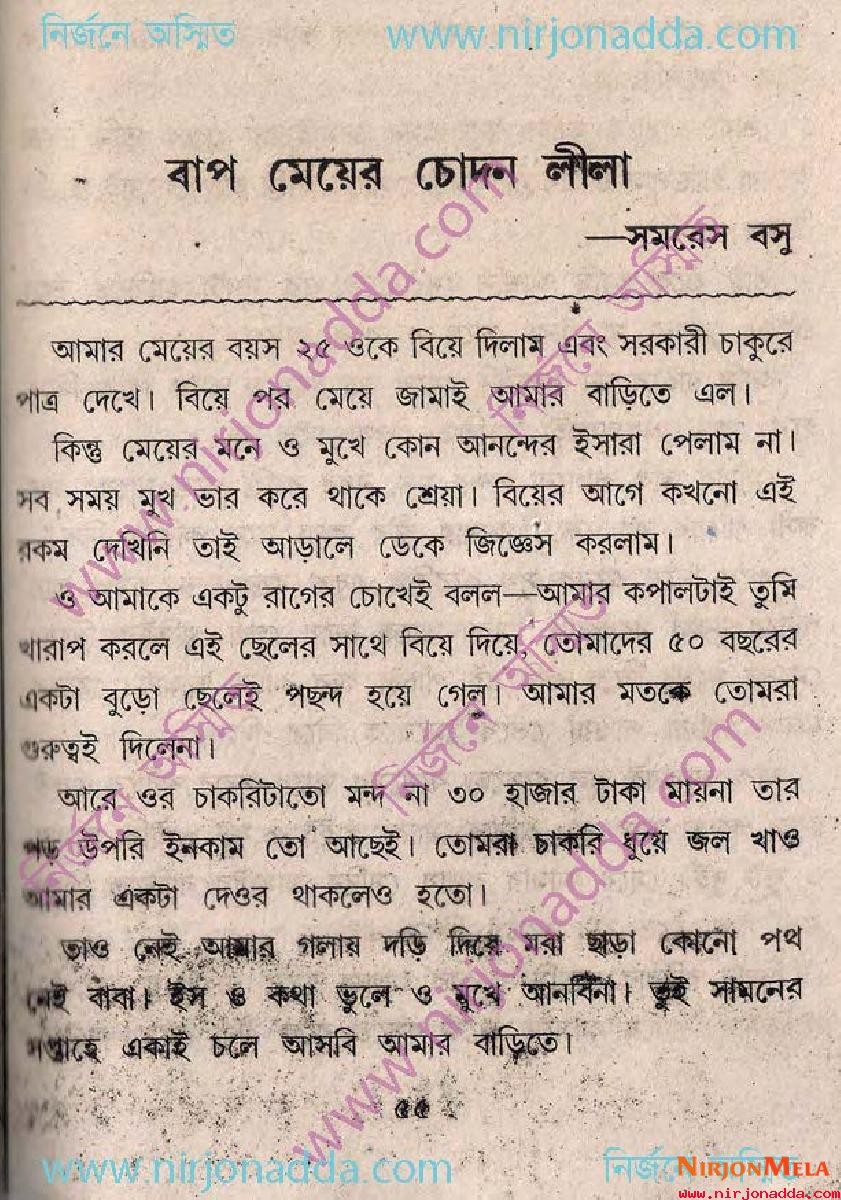 নির্জনে অস্মিত www.nirjonadda.com
বাপ মেয়ের চোদন লীলা
—সমরেস বসু
আমার মেয়ের বয়স ২৫ ওকে বিয়ে দিলাম এবং সরকারী চাকুরে
পাত্র দেখে। বিয়ে পর মেয়ে জামাই আমার বাড়িতে এল।
কিন্তু মেয়ের মনে ও মুখে কোন আনন্দের ইসারা পেলাম না।
সব সময় মুখ ভার করে থাকে শ্রেয়া। বিয়ের আগে কখনো এই
রকম দেখিনি তাই আড়ালে ডেকে জিজ্ঞেস করলাম।
ও আমাকে একটু রাগের চোখেই বলল—আমার কপালটাই তুমি
খারাপ করলে এই ছেলের সাথে বিয়ে দিয়ে, তোমাদের ৫০ বছরের
একটা বুড়ো ছেলেই পছন্দ হয়ে গেল। আমার মতকে তোমরা
গুরুত্বই দিলেনা।
আরে ওর চাকরিটাতো মন্দ না ৩০ হাজার টাকা মায়না তার
পড় উপরি ইনকাম তো আছেই। তোমরা চাকরি ধুয়ে জল খাও
আমার একটা দেওর থাকলেও হতো।
তাও নেই আমার গলায় দড়ি দিয়ে মরা ছাড়া কোনো পথ
নেই বাবা। ইস ও কথা ভুলে ও মুখে আনবিনা। তুই সামনের
সপ্তাহে একাই চলে আসবি আমার বাড়িতে।
৫৫
www.nirjonadda.com নির্জনে অস্মিত
NIRJONMELA
www.nirjonadda.com
www.nirjonadda.com
নির্জনে অস্মিত
নির্জনে অস্মিত
নির্জনে অস্মিত
www.nirjonadda.com